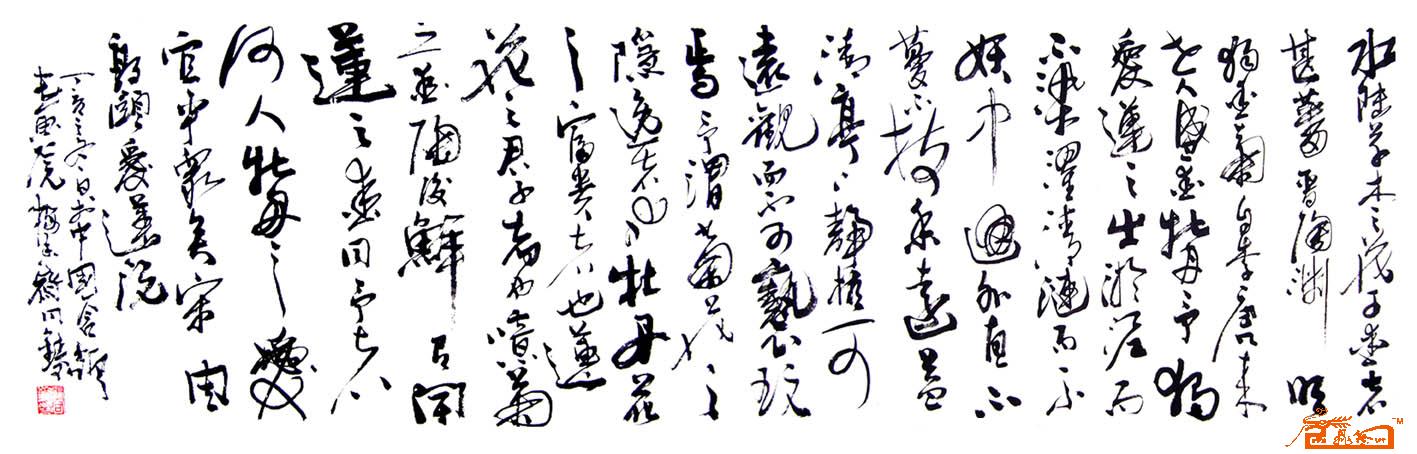 水陸草木之花可愛者
甚蕃晉陶淵明
獨愛菊自李唐來
世人盛愛牡丹予獨
愛蓮之出淤泥而
不染濯清漣而不
妖中通外直不
蔓不枝香遠益
清亭亭靜植可
遠觀而不可褻玩
焉予謂菊花之
隱逸者也牡丹花
之富貴者也蓮
花之君子者也噫菊
之愛陶後鮮有聞
蓮之愛同予者
何人牡丹之愛
宜乎眾矣宋周
敦頤愛蓮說
丁亥之冬日於中國合肥